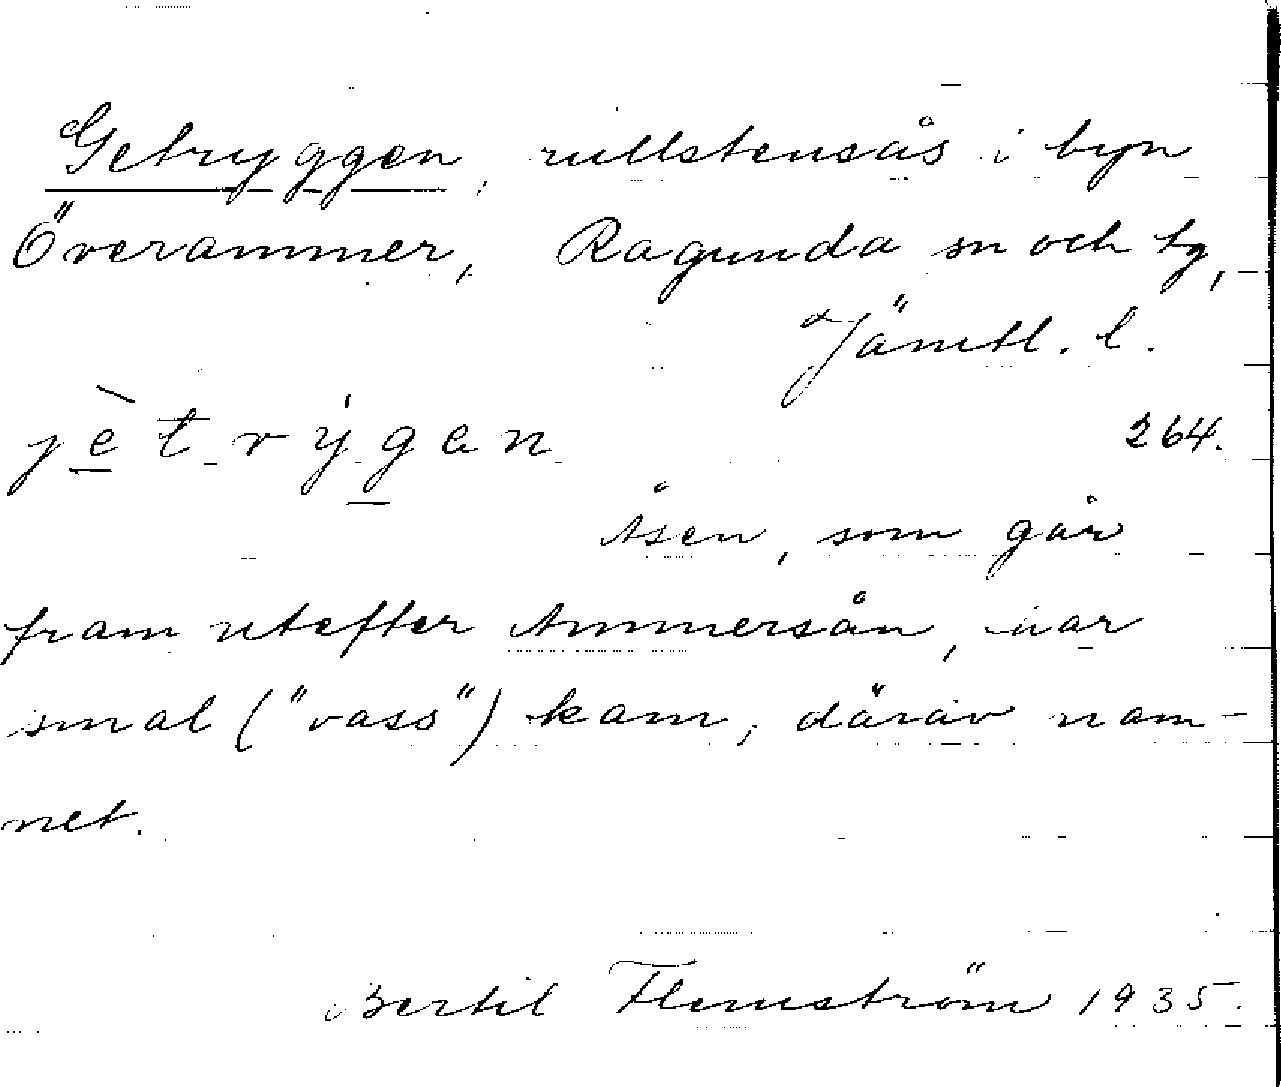 Getryggen, rullstensås i byn
Överammer, Ragunda sn och tg,
Jämtl. l.
jètrýgen 264.
Åsen, som går
fram utefter Ammersån, har
smal ("vass") kam, därav nam-
net.
Bertil Flemström 1935.